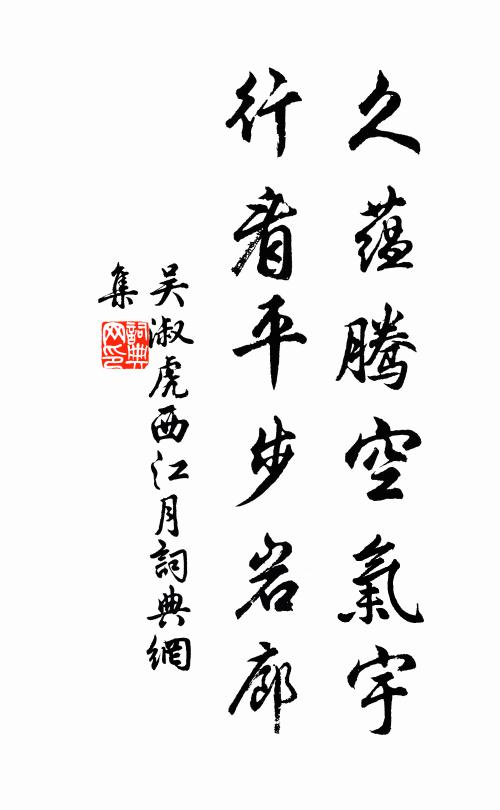 久蕴腾空氣宇
行看平步岩廊
吴淑虎西江月詞典網
集
詞典
网印